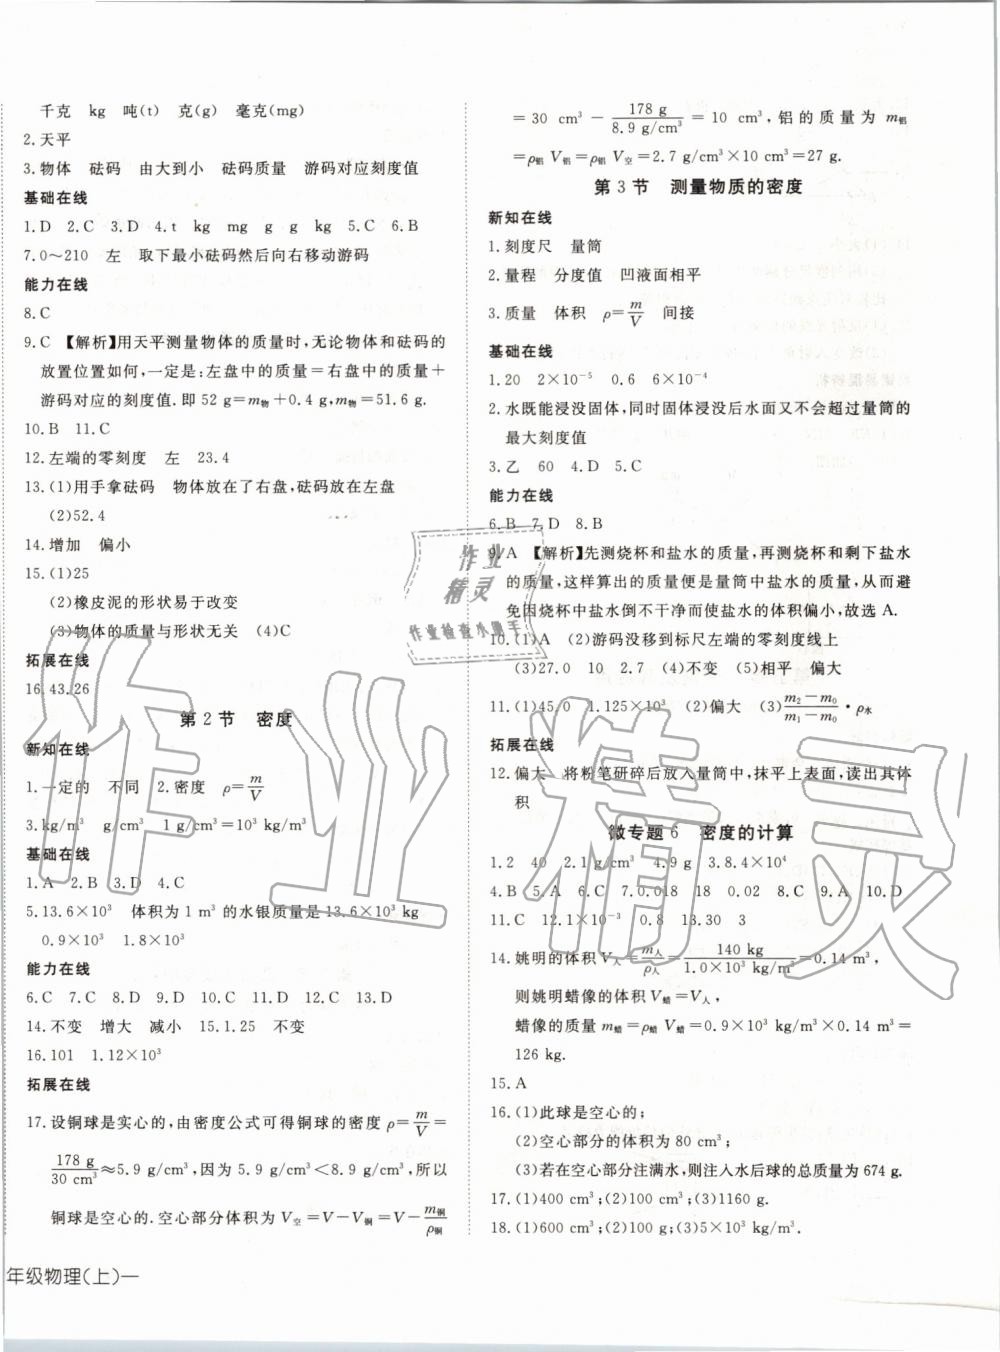 千克　kg　吨(t)　克(g)　毫克(mg)
2.天平
3.物体　砝码　由大到小　砝码质量　游码对应刻度值
基础在线
1.D　2.C　3.D　4.t　kg　mg　g　g　kg　5.C　6.B
7.0～210　左　取下最小砝码然后向右移动游码
能力在线
8.C
9.C　【解析】用天平测量物体的质量时,无论物体和砝码的
放置位置如何,一定是:左盘中的质量＝右盘中的质量＋
游码对应的刻度值.即 52 g＝m物＋0.4 g,m物＝51.6 g.
10.B　11.C
12.左端的零刻度　左　23.4
13.(1)用手拿砝码　物体放在了右盘,砝码放在左盘
(2)52.4
14.增加　偏小
15.(1)25
(2)橡皮泥的形状易于改变
(3)物体的质量与形状无关　(4)C
拓展在线
16.43.26
第 2 节　密度
新知在线
1.一定的　不同　2.密度　ρ＝m/V
3.kg/m³　g/cm³　1 g/cm³＝10³ kg/m³
基础在线
1.A　2.B　3.D　4.C
5.13.6×10³　体积为 1 m³ 的水银质量是 13.6×10³ kg
0.9×10³　1.8×10³
能力在线
6.C　7.C　8.D　9.D　10.C　11.C　12.C　13.D
14.不变　增大　减小　15.1.25　不变
16.101　1.12×10³
拓展在线
17.设铜球是实心的,由密度公式可得铜球的密度 ρ＝m/V＝
178 g/30 cm³≈5.9 g/cm³,因为 5.9 g/cm³＜8.9 g/cm³,所以
铜球是空心的.空心部分体积为 V空＝V－V铜＝V－m铜/ρ铜
年级物理(上)—
＝30 cm³－178 g/8.9 g/cm³＝10 cm³,铝的质量为 m铝
＝ρ铝 V铝＝ρ铝 V空＝2.7 g/cm³×10 cm³＝27 g.
第 3 节　测量物质的密度
新知在线
1.刻度尺　量筒
2.量程　分度值　凹液面相平
3.质量　体积　ρ＝m/V　间接
基础在线
1.20　2×10⁻⁵　0.6　6×10⁻⁴
2.水既能浸没固体,同时固体浸没后水面又不会超过量筒的
最大刻度值
3.乙　60　4.D　5.C
能力在线
6.B　7.D　8.B
9.A　【解析】先测烧杯和盐水的质量,再测烧杯和剩下盐水
的质量,这样算出的质量便是量筒中盐水的质量,从而避
免因烧杯中盐水倒不干净而使盐水的体积偏小,故选 A.
10.(1)A　(2)游码没移到标尺左端的零刻度线上
(3)27.0　10　2.7　(4)不变　(5)相平　偏大
11.(1)45.0　1.125×10³　(2)偏大　(3)(m₂－m₀)/(m₁－m₀)·ρ水
拓展在线
12.偏大　将粉笔研碎后放入量筒中,抹平上表面,读出其体
积
微专题 6　密度的计算
1.2　40　2.1 g/cm³　4.9 g　3.8.4×10⁴
4.B　5.A　6.C　7.0.018　18　0.02　8.C　9.A　10.D
11.C　12.1×10⁻³　0.8　13.30　3
14.姚明的体积 V人＝m人/ρ人＝140 kg/1.0×10³ kg/m³＝0.14 m³,
则姚明蜡像的体积 V蜡＝V人,
蜡像的质量 m蜡＝ρ蜡 V蜡＝0.9×10³ kg/m³×0.14 m³＝
126 kg.
15.A
16.(1)此球是空心的;
(2)空心部分的体积为 80 cm³;
(3)若在空心部分注满水,则注入水后球的总质量为 674 g.
17.(1)400 cm³;(2)100 cm³;(3)1160 g.
18.(1)600 cm³;(2)100 g;(3)5×10³ kg/m³.
作业
精灵
作业检查小助手
作业精灵